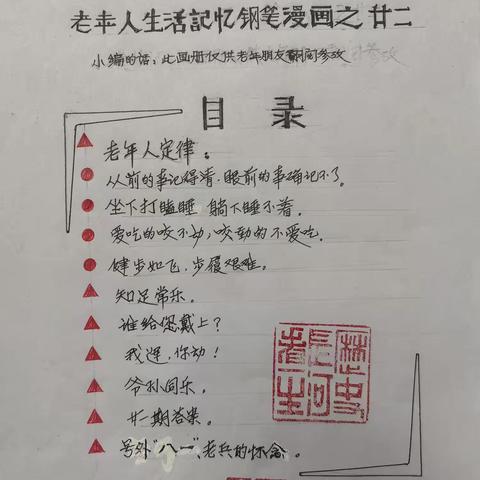 老年人生活記忆钢笔漫画之廿二
小编的话：此画册仅供老年朋友翻阅参考
目录
老年人定律：
从前的事记得清，眼前的事确记不了。
坐下打瞌睡 躺下睡不着。
爱吃的咬不动，咬动的不爱吃。
健步如飞，步履艰难。
知足常乐。
谁给您戴上？
我遲，你动！
爷孙同乐。
廿一期答案。
号外"八一"、老兵的怀念。